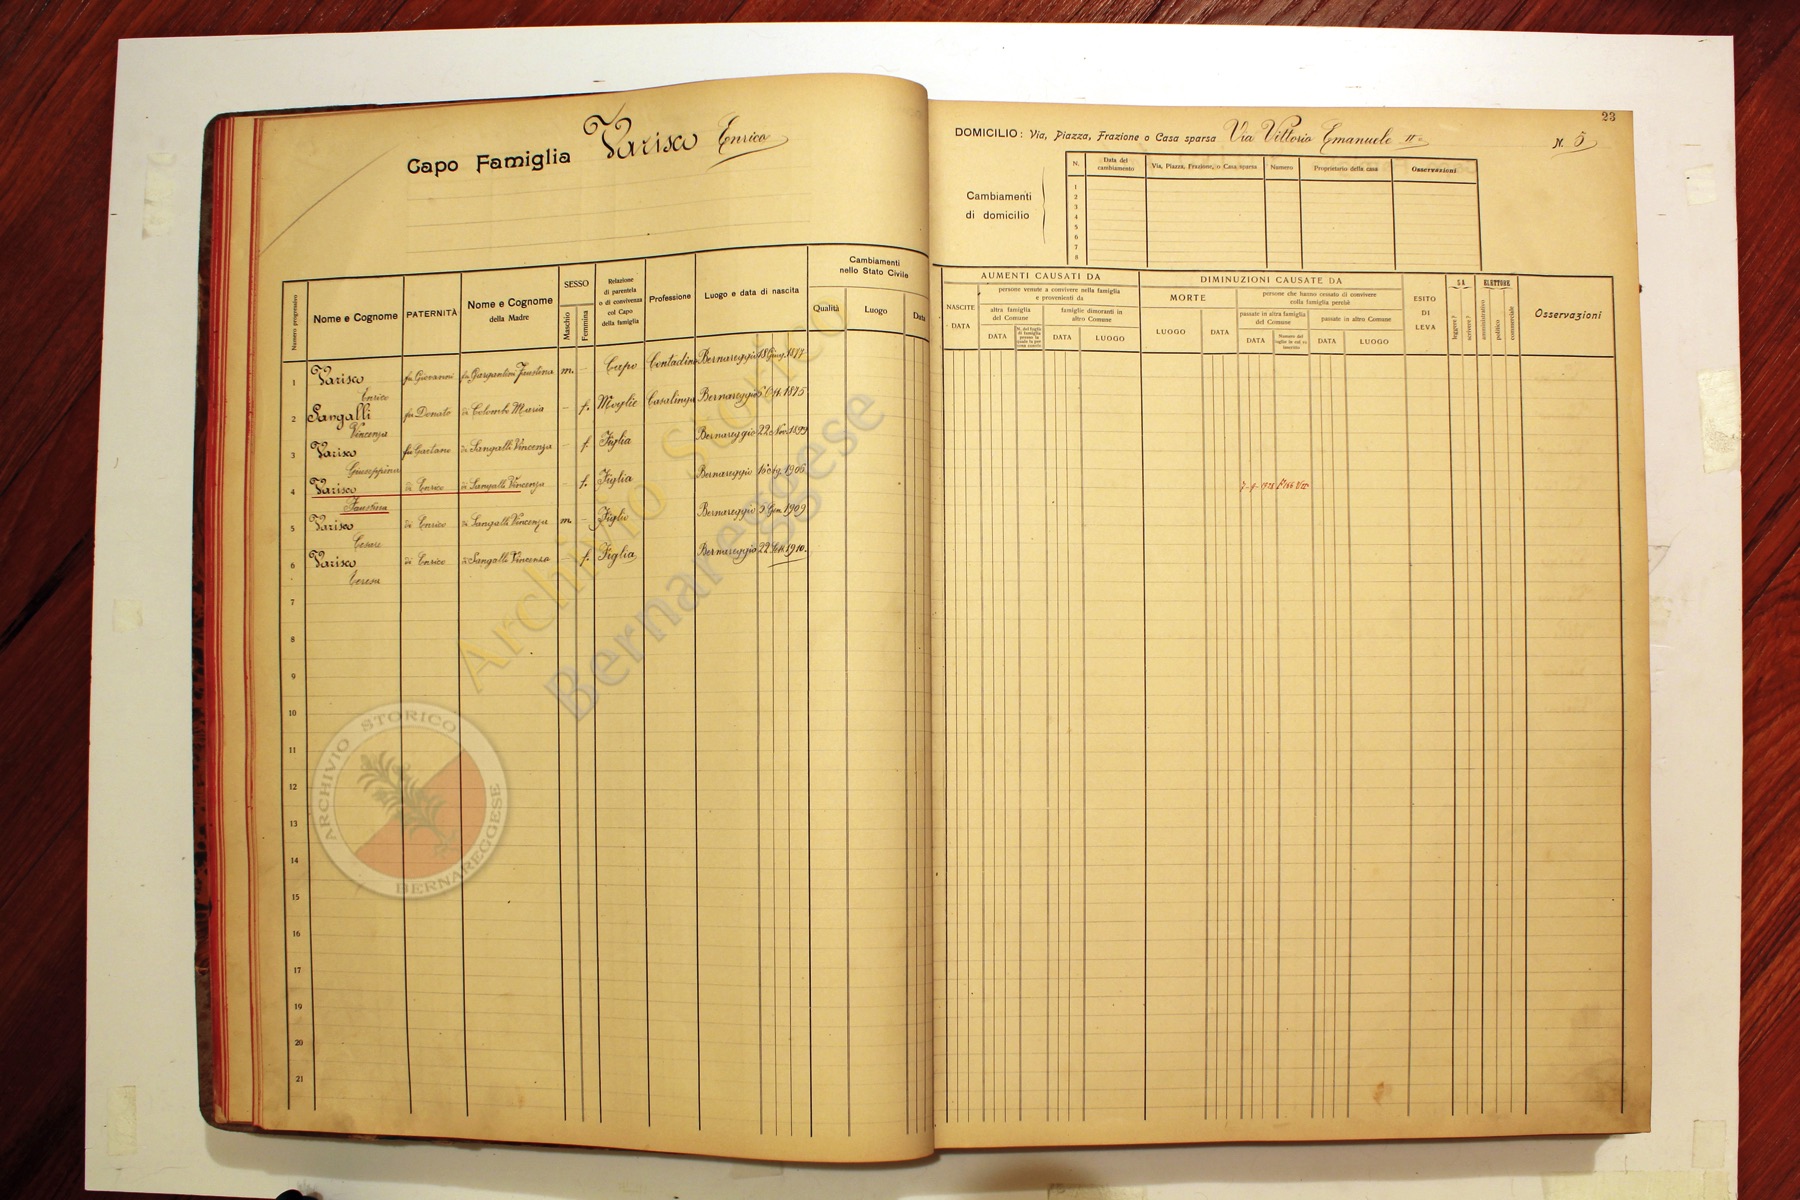 Capo Famiglia Varisco Enrico
Numero progressivo
Nome e Cognome
PATERNITÀ
Nome e Cognome
della Madre
SESSO
Maschio
Femmina
Relazione
di parentela
o di convivenza
col Capo
della famiglia
Professione
Luogo e data di nascita
Cambiamenti
nello Stato Civile
Qualità
Luogo
Data
1 Varisco fu Giovanni fu Gargantini Faustina m. – Capo Contadino Bernareggio 18 Giug. 1877
Enrico
2 Sangalli fu Donato di Colombo Maria – f. Moglie Casalinga Bernareggio 5 Ott. 1875
Vincenza
3 Varisco fu Gaetano di Sangalli Vincenza – f. Figlia Bernareggio 22 Nov. 1899
Giuseppina
4 Varisco di Enrico di Sangalli Vincenza – f. Figlia Bernareggio 1906
Faustina
5 Varisco di Enrico di Sangalli Vincenza m. – Figlio Bernareggio 5 Gen. 1909
Cesare
6 Varisco di Enrico di Sangalli Vincenza – f. Figlia Bernareggio 22 Sett. 1910.
Teresa
7
8
9
10
11
12
13
14
15
16
17
18
19
20
21
23
DOMICILIO: Via, Piazza, Frazione o Casa sparsa Via Vittorio Emanuele II° N. 5
Cambiamenti
di domicilio
N.
Data del
cambiamento
Via, Piazza, Frazione, o Casa sparsa
Numero
Proprietario della casa
Osservazioni
1
2
3
4
5
6
7
8
AUMENTI CAUSATI DA
NASCITE
DATA
persone venute a convivere nella famiglia
e provenienti da
altra famiglia
del Comune
famiglie dimoranti in
altro Comune
DATA
DATA
LUOGO
DIMINUZIONI CAUSATE DA
MORTE
LUOGO
DATA
persone che hanno cessato di convivere
colla famiglia perchè
passate in altra famiglia
del Comune
passate in altro Comune
DATA
DATA
LUOGO
ESITO
DI
LEVA
SA
leggere?
scrivere?
ELETTORE
amministrativo
politico
commerciale
Osservazioni
Archivio Storico
Bernareggese
ARCHIVIO STORICO
BERNAREGGESE